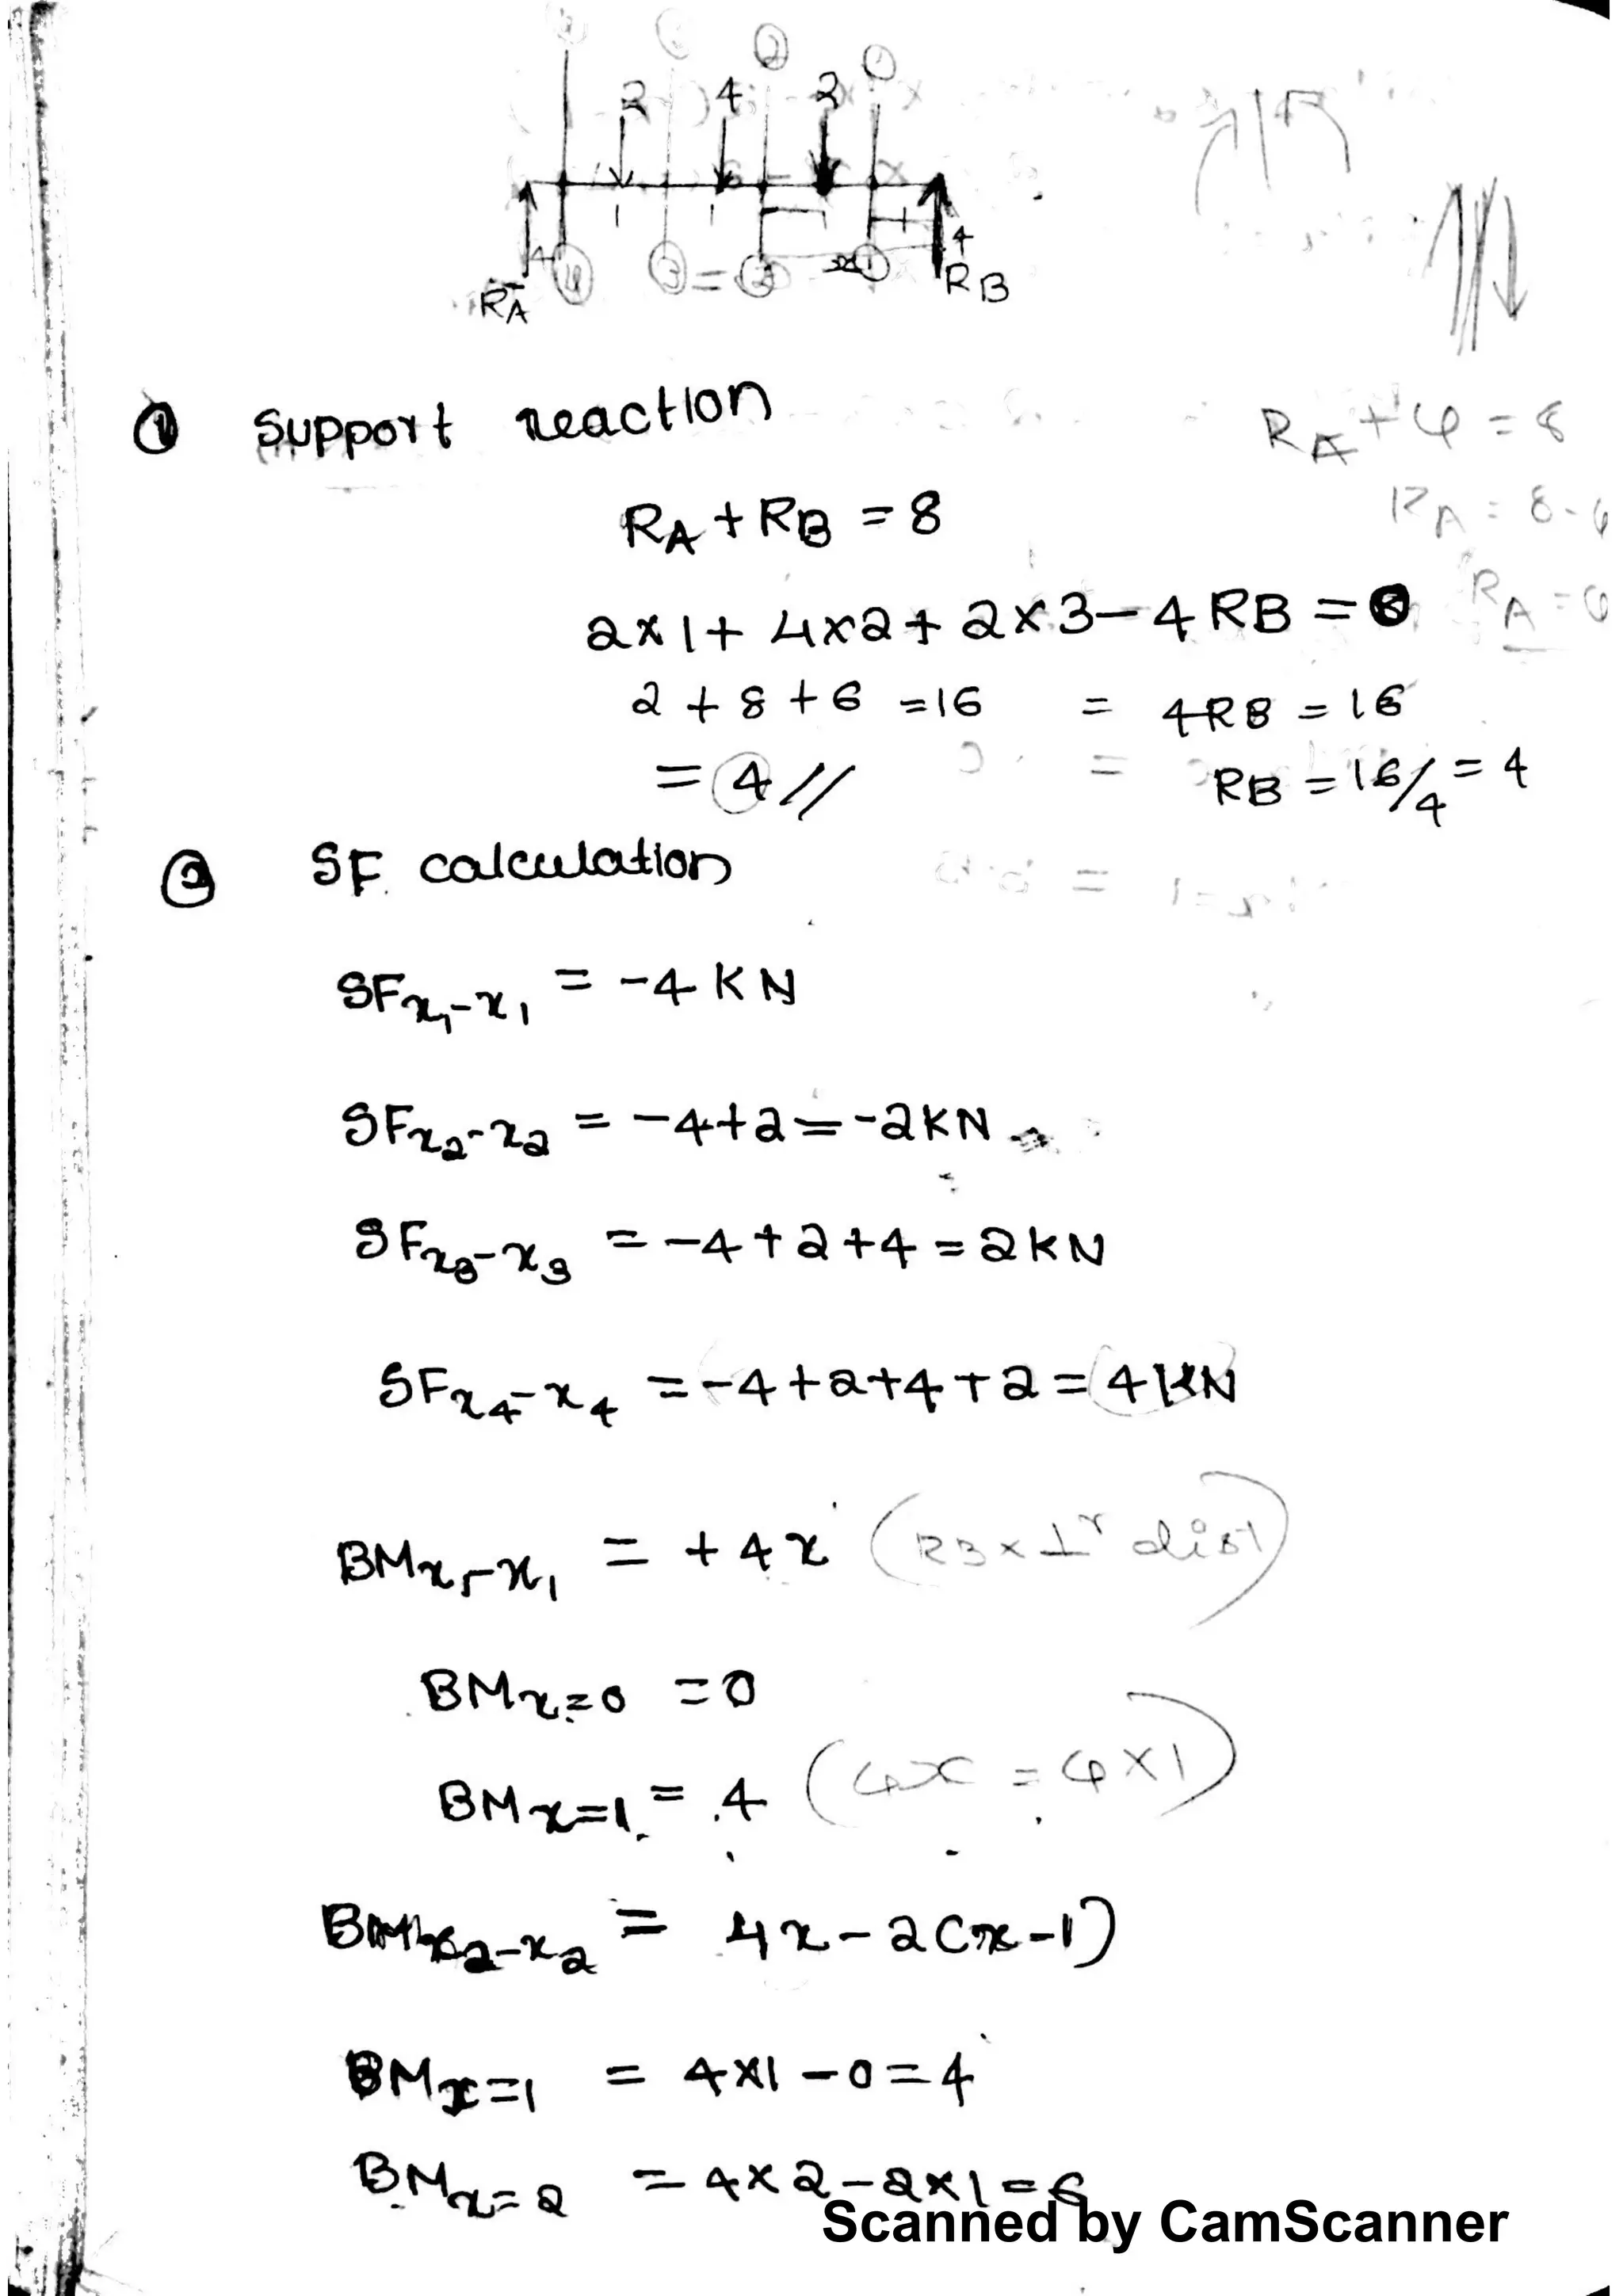 2 4 2
1 1 1
4
RA 4 3 = 2 x 1 RB
① Support reaction
RA + 4 = 8
RA = 8-4
RA + RB = 8
2×1+ 4×2+ 2×3- 4 RB = 0
2 + 8 + 6 = 16 = 4RB = 16
= 4 // RB = 16/4 = 4
② SF calculation
SFx1-x1 = -4 KN
SFx2-x2 = -4+2=-2KN
SFx3-x3 = -4+2+4 = 2KN
SFx4-x4 = -4+2+4+2 = 4KN
BMx1-x1 = +4x (RB × ⊥r dist)
BMx=0 = 0
BMx=1 = 4 (4x = 4×1)
BMx2-x2 = 4x-2(x-1)
BMx=1 = 4×1-0=4
BMx=2 = 4×2-2×1=6
Scanned by CamScanner